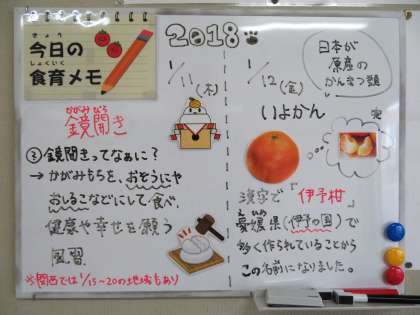 きょう
今日の
しょくいく
食育メモ
2018
1/11(木)
かがみびらき
鏡開き
鏡開きってなぁに?
→かがみもちを、おぞうにや
おしるこなどにして食べ、
健康や幸せを願う
風習
※関西では1/15~20の地域もあり
1/12(金)
日本が
原産の
かんきつ類
いよかん
漢字で「伊予柑」
愛媛県(伊予の国)で
多く作られていることから
この名前になりました。